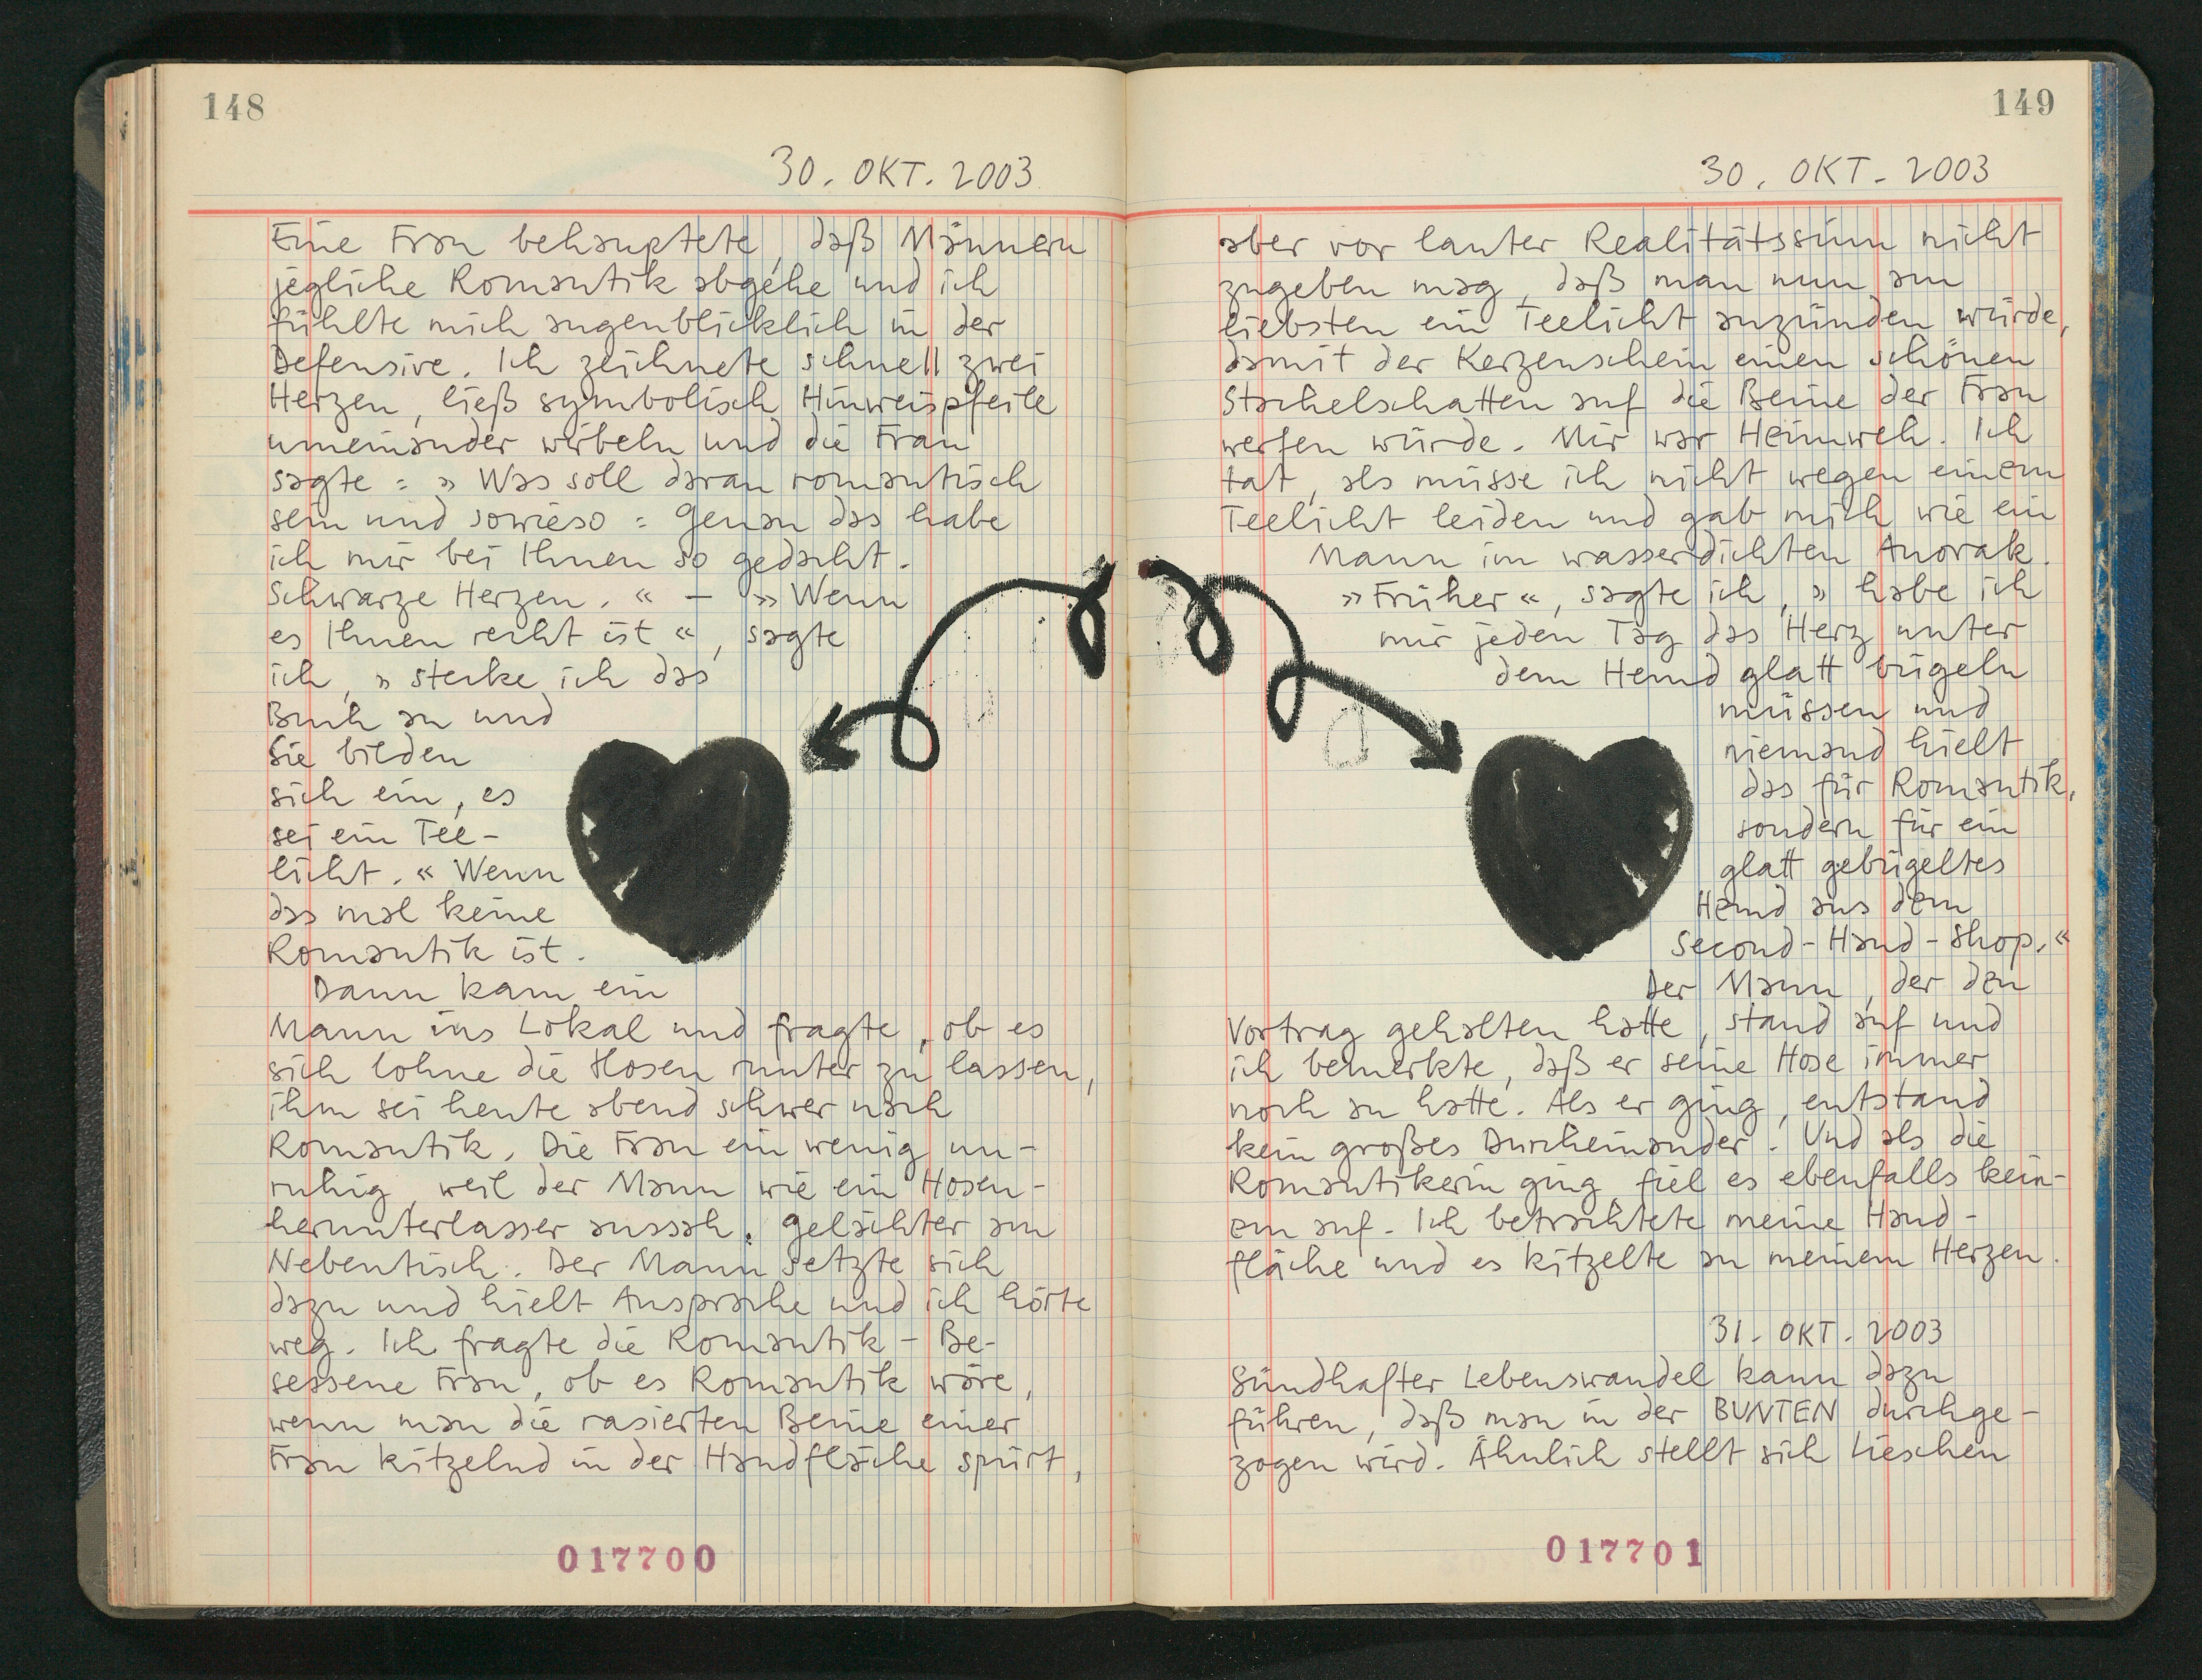 148
30. OKT. 2003
Eine Frau behauptete, daß Männern
jegliche Romantik abgehe und ich
fühlte mich augenblicklich in der
Defensive. Ich zeichnete schnell zwei
Herzen, ließ symbolisch Hinweispfeile
umeinander wirbeln und die Frau
sagte: » Was soll daran romantisch
sein und sowieso: Genau das habe
ich mir bei Ihnen so gedacht.
Schwarze Herzen. « – » Wenn
es Ihnen recht ist «, sagte
ich, » stecke ich das
Buch an und
Sie bilden
sich ein, es
sei ein Tee-
licht. « Wenn
das mal keine
Romantik ist.
Dann kam ein
Mann ins Lokal und fragte, ob es
sich lohne die Hosen runter zu lassen,
ihm sei heute abend schwer nach
Romantik. Die Frau ein wenig un-
ruhig, weil der Mann wie ein Hosen-
herunterlasser aussah. Gelächter am
Nebentisch. Der Mann setzte sich
dazu und hielt Ansprache und ich hörte
weg. Ich fragte die Romantik-Be-
sessene Frau, ob es Romantik wäre,
wenn man die rasierten Beine einer
Frau kitzelnd in der Handfläche spürt,
017700
149
30. OKT. 2003
aber vor lauter Realitätssinn nicht
zugeben mag, daß man nun am
liebsten ein Teelicht anzünden würde,
damit der Kerzenschein einen schönen
Stachelschatten auf die Beine der Frau
werfen würde. Mir war Heimweh. Ich
tat, als müsse ich nicht wegen einem
Teelicht leiden und gab mich wie ein
Mann im wasserdichten Anorak.
» Früher «, sagte ich, » habe ich
mir jeden Tag das Herz unter
dem Hemd glatt bügeln
müssen und
niemand hielt
das für Romantik,
sondern für ein
glatt gebügeltes
Hemd aus dem
Second-Hand-Shop. «
Der Mann, der den
Vortrag gehalten hatte, stand auf und
ich bemerkte, daß er seine Hose immer
noch an hatte. Als er ging, entstand
kein großes Durcheinander. Und als die
Romantikerin ging, fiel es ebenfalls kein-
em auf. Ich betrachtete meine Hand-
fläche und es kitzelte an meinem Herzen.
31. OKT. 2003
Sündhafter Lebenswandel kann dazu
führen, daß man in der BUNTEN durchge-
zogen wird. Ähnlich stellt sich Lieschen
017701